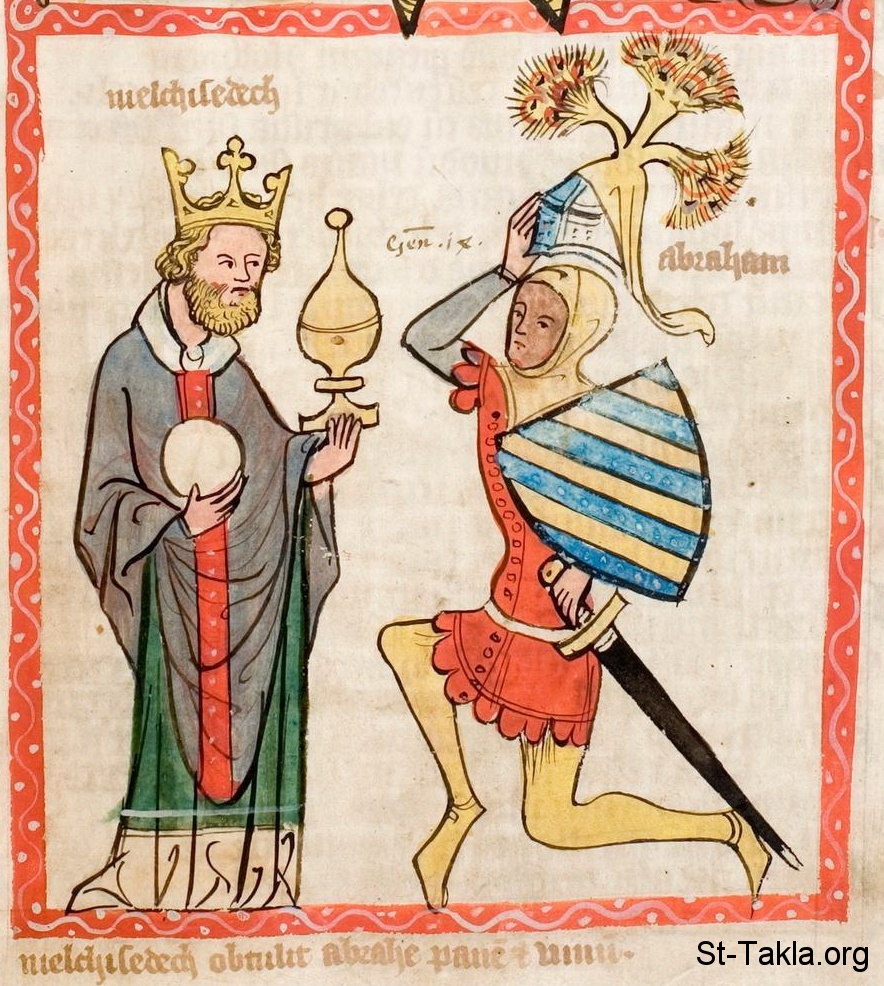 melchisedech
Gen̄ .ix.
abraham
melchisedech obtulit abrahe panē ⁊ uinū.
St-Takla.org